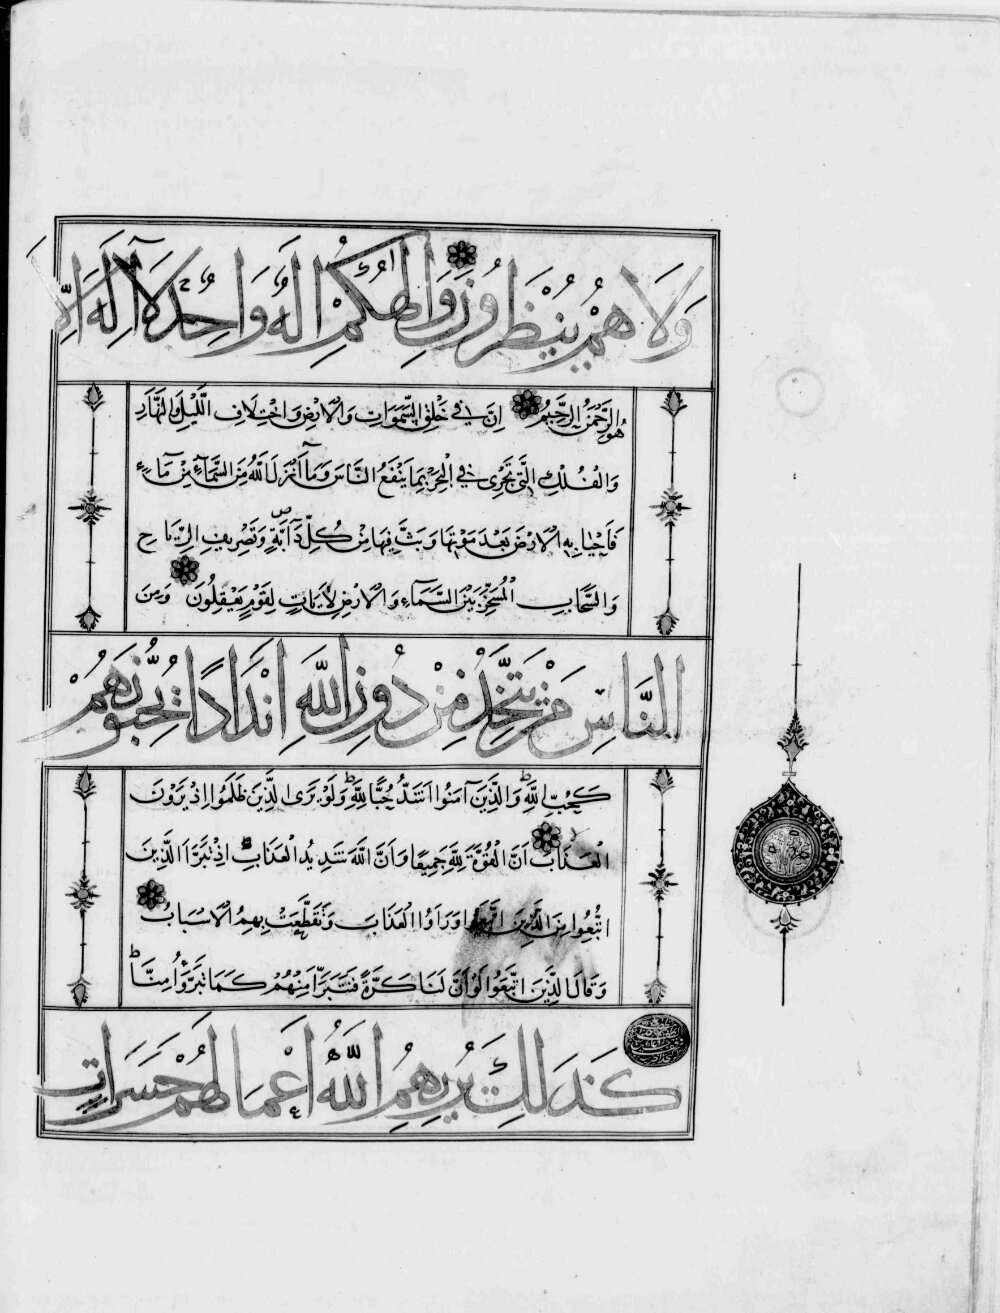 وَلَا هُمْ يُنْظَرُونَ وَإِلٰهُكُمْ إِلٰهٌ وَاحِدٌ لَآ إِلٰهَ إِلَّا
هُوَ الرَّحْمٰنُ الرَّحِيمُ اِنَّ فِي خَلْقِ السَّمٰوَاتِ وَالْاَرْضِ وَاخْتِلَافِ اللَّيْلِ وَالنَّهَارِ
وَالْفُلْكِ الَّتِي تَجْرِي فِي الْبَحْرِ بِمَا يَنْفَعُ النَّاسَ وَمَآ اَنْزَلَ اللّٰهُ مِنَ السَّمَآءِ مِنْ مَآءٍ
فَاَحْيَا بِهِ الْاَرْضَ بَعْدَ مَوْتِهَا وَبَثَّ فِيهَا مِنْ كُلِّ دَآبَّةٍ وَتَصْرِيفِ الرِّيَاحِ
وَالسَّحَابِ الْمُسَخَّرِ بَيْنَ السَّمَآءِ وَالْاَرْضِ لَاٰيَاتٍ لِقَوْمٍ يَعْقِلُونَ وَمِنَ
النَّاسِ مَنْ يَتَّخِذُ مِنْ دُونِ اللّٰهِ اَنْدَادًا يُحِبُّونَهُمْ
كَحُبِّ اللّٰهِ وَالَّذِينَ آمَنُوا اَشَدُّ حُبًّا لِلّٰهِ وَلَوْ يَرَى الَّذِينَ ظَلَمُوا اِذْ يَرَوْنَ
الْعَذَابَ اَنَّ الْقُوَّةَ لِلّٰهِ جَمِيعًا وَاَنَّ اللّٰهَ شَدِيدُ الْعَذَابِ اِذْ تَبَرَّاَ الَّذِينَ
اتُّبِعُوا مِنَ الَّذِينَ اتَّبَعُوا وَرَاَوُا الْعَذَابَ وَتَقَطَّعَتْ بِهِمُ الْاَسْبَابُ
وَقَالَ الَّذِينَ اتَّبَعُوا لَوْ اَنَّ لَنَا كَرَّةً فَنَتَبَرَّاَ مِنْهُمْ كَمَا تَبَرَّؤُا مِنَّا
كَذٰلِكَ يُرِيهِمُ اللّٰهُ اَعْمَالَهُمْ حَسَرَاتٍ